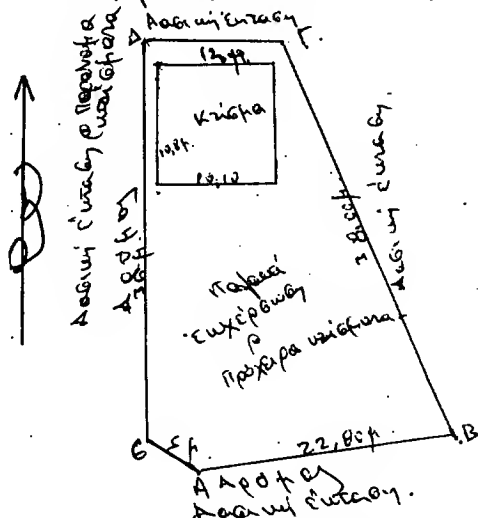 Δ Δασική έκταση Γ
12,40
Κτίσμα
10,8μ.
10,10
Δασική έκταση ρ Παράνομα
κτίσματα
Δρόμος
36μ
38,60μ.
Δασική έκταση.
Παλαιά
εκχέρσωση
ρ
Πρόχειρα κτίσματα
Β
Ε 5μ
22,80μ.
Α Δρόμος
Δασική έκταση.